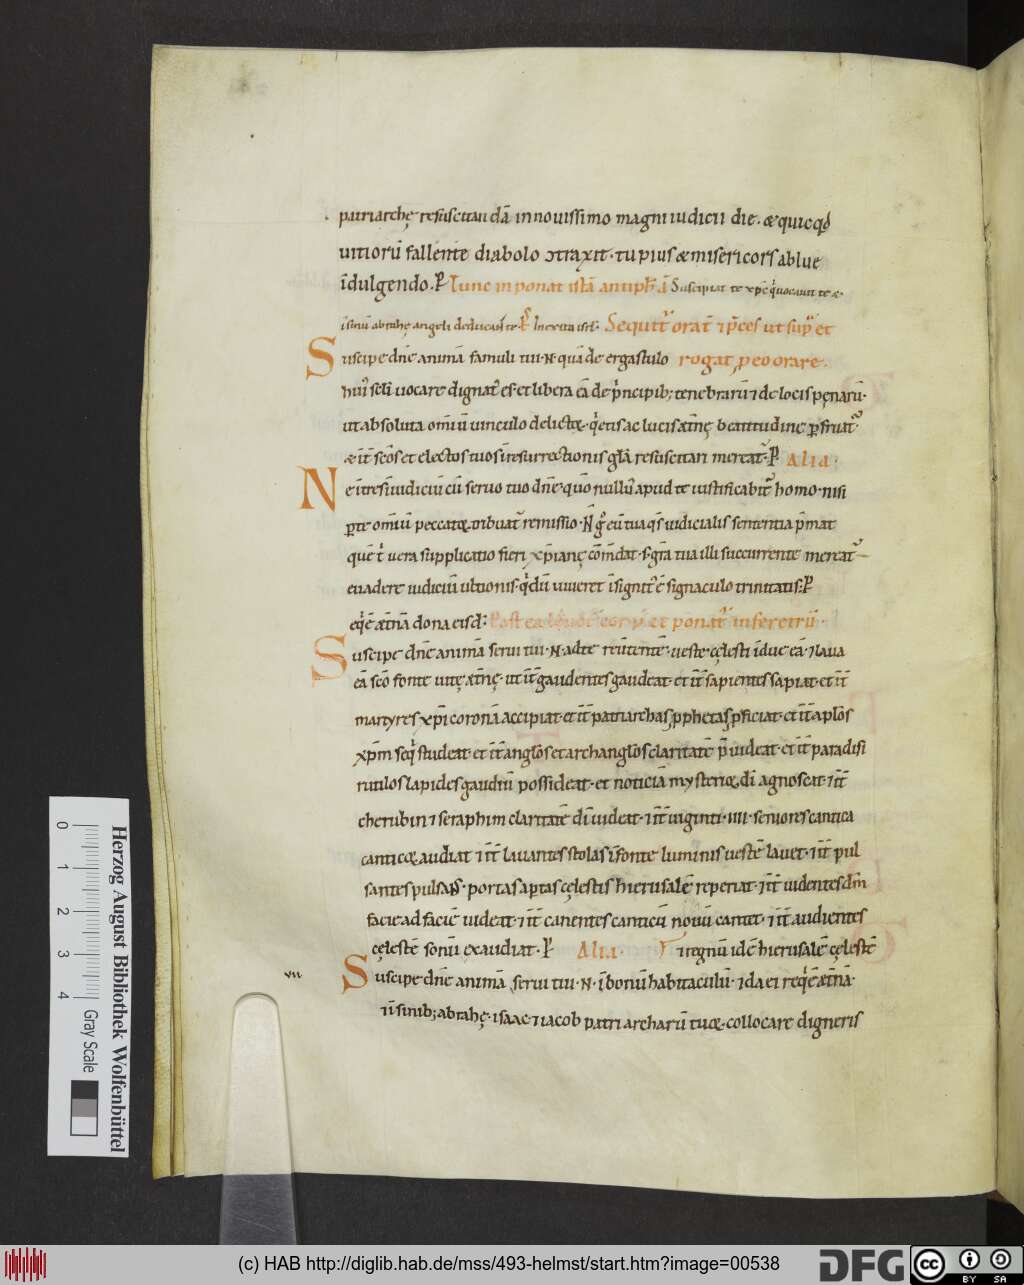 patriarchę resuscitandā in nouissimo magni iudicii die. & quicqđ
uitiorū fallente diabolo ↄtraxit. tu pius & misericors ablue
īdulgendo. P̄ Tunc inponat istā antiph̄ā Suscipiat te xp̄c q̓ uocauit te &.
ī sinū abrahę angeli deducant te. In exitu isrl̄. Sequit᷑ orat̄ 7 p̄ces ut sup̄ et
Suscipe dn̄e animā famuli tui .N. quā de ergastulo rogat, p eo orare.
hui᷑ sc̄li uocare dignat᷑ es. et libera eā de p̓ncipib; tenebrarū 7 de locis pęnarū.
ut absoluta om̄iū uinculo delictoꝝ. q̓etis ac lucis ętn̄ę beatitudine ꝑfruat᷑.
& īt̄ sc̄os et electos tuos ī resurrectionis gl̄ā resuscitari mereat᷑. P̄ Alia.
Ne ītres ī iudiciū cū seruo tuo dn̄e. quō nullus apud te iustificabit᷑ homo. nisi
ꝑ te om̄iū peccatoꝝ tribuat᷑ remissio. N̄ g̓ eū tua q̄s iudicialis sententia p̄mat
quē t̓ uera supplicatio fidei xp̄ianę cōm̄dat. s; gr̄a tua illi succurrente mereat᷑
euadere iudiciū ultionis. q̓ dū uiueret īsignit᷑ ē signaculo trinitatis. P̄
req̓ē ętn̄ā dona eis d̄. Post ea et ponat᷑ in feretrū.
Suscipe dn̄e animā serui tui .N. ad te reūtentē. ueste cęlesti īdue eā. 7 laua
eā sc̄o fonte uitę ętn̄ę. ut īt̄ gaudentes gaudeat. et īt̄ sapientes sapiat. et īt̄
martyres xp̄i coronā accipiat. et īt̄ patriarchas, pphetas, pficiat. et īt̄ apl̄os
xp̄m seq̓ studeat. et īt̄ anglōs et archanglōs claritatē p̄uideat. et īt̄ paradisi
rutilos lapides gaudiū possideat. et noticiā mysterioꝝ dī agnoscat. 7 īt̄
cherubin 7 seraphim claritatē dī uideat. 7 īt̄ uiginti .IIII. seniores cantica
canticoꝝ audiat 7 īt̄ lauantes stolas ī fonte luminis uestē lauet. 7 īt̄ pul
santes pulsans. portas aptas cęlestis hierusalē reperiat. 7 īt̄ uidentes dm̄
facie ad faciē uideat. 7 īt̄ canentes canticū nouū cantet. 7 īt̄ audientes
cęlestē sonū exaudiat. P̄ Alia. ī regnū idē hierusalē cęlestē
Suscipe dn̄e animā serui tui .N. ī bonū habitaculū. 7 da ei req̓ē ętn̄ā.
VII
7 ī sinib; abrahę. isaac. 7 iacob patriarcharū tuoꝝ. collocare digneris
0 1 2 3 4 Gray Scale
Herzog August Bibliothek Wolfenbüttel
(c) HAB http://diglib.hab.de/mss/493-helmst/start.htm?image=00538
DFG cc BY SA